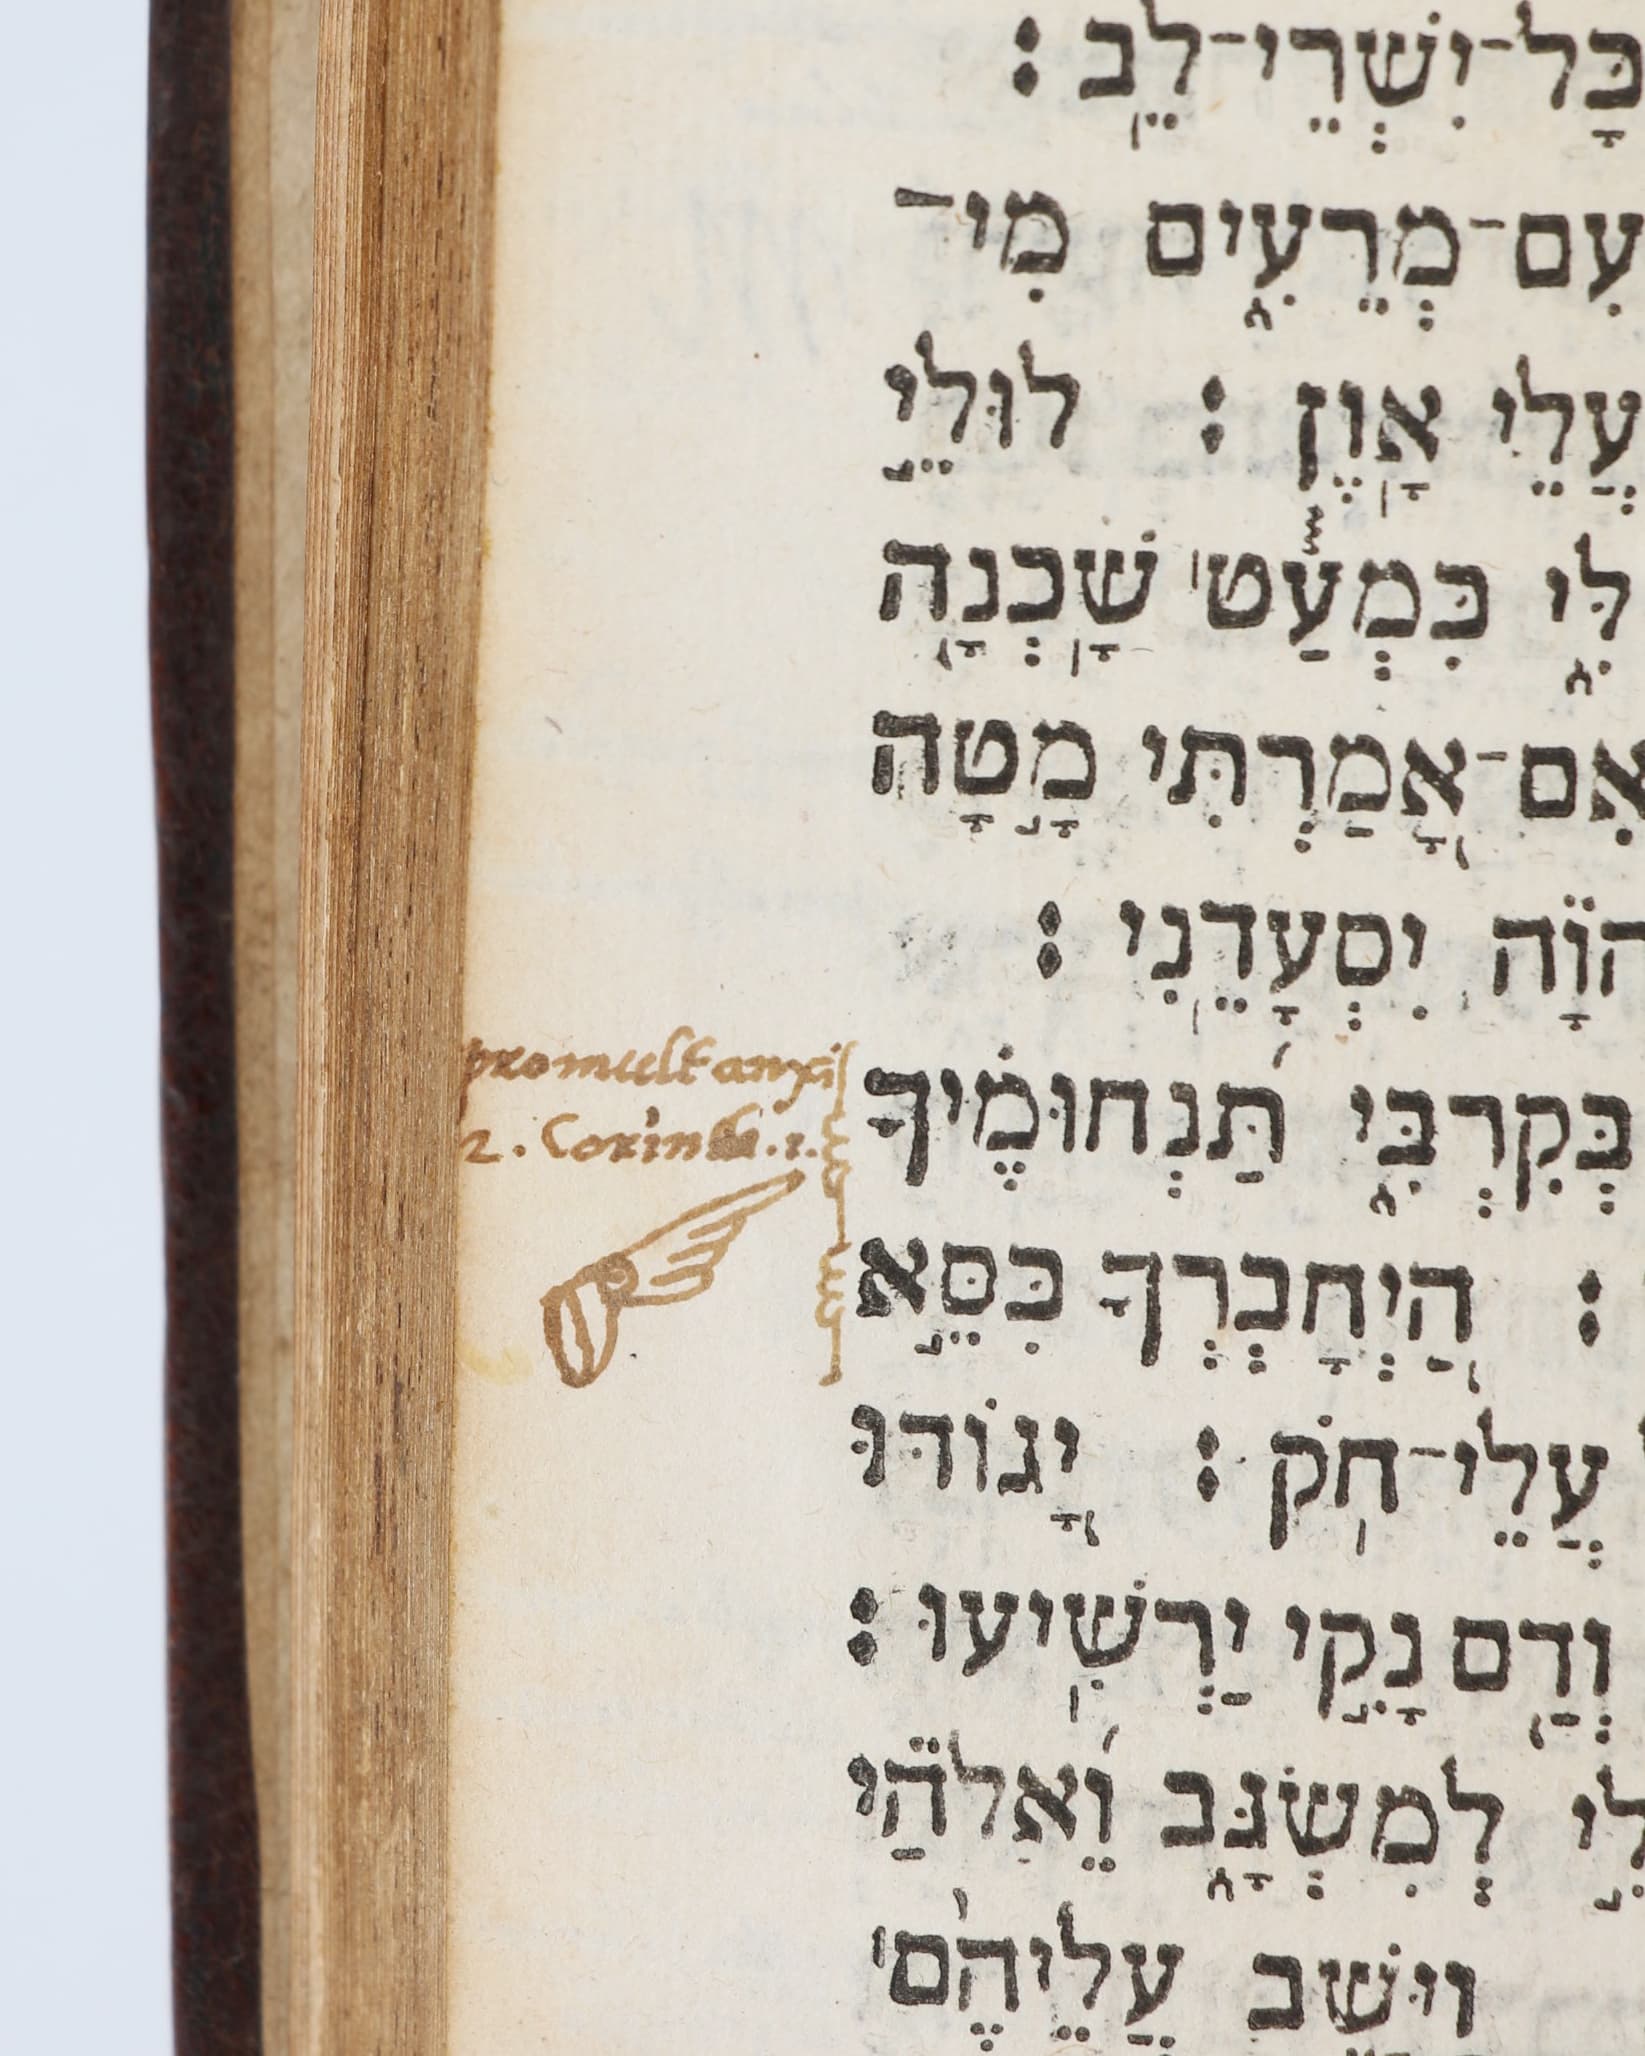 כָּל־יִשְׁרֵי־לֵֽב׃
עִם־מְרֵעִ֑ים מִי־
עֲלֵי אָֽוֶן׃ לוּלֵ֣י
לִּ֑י כִּמְעַ֓ט׀ שָֽׁכְנָ֖ה
אִם־אָ֭מַרְתִּי מָ֣טָה
יִסְעָדֵֽנִי׃
בְּקִרְבִּ֑י תַּ֝נְחוּמֶ֗יךָ
promult anxi
2. Corinth. 1.
׃ הַֽ֭יְחָבְרְךָ כִּסֵּ֣א
עֲלֵי־חֹֽק׃ יָ֭גוֹדּוּ
וְדָ֖ם נָקִ֣י יַרְשִֽׁיעוּ׃
לִ֣י לְמִשְׂגָּ֑ב וֵ֝אלֹהַ֗י
וישב עֲלֵיהֶ֨ם׀